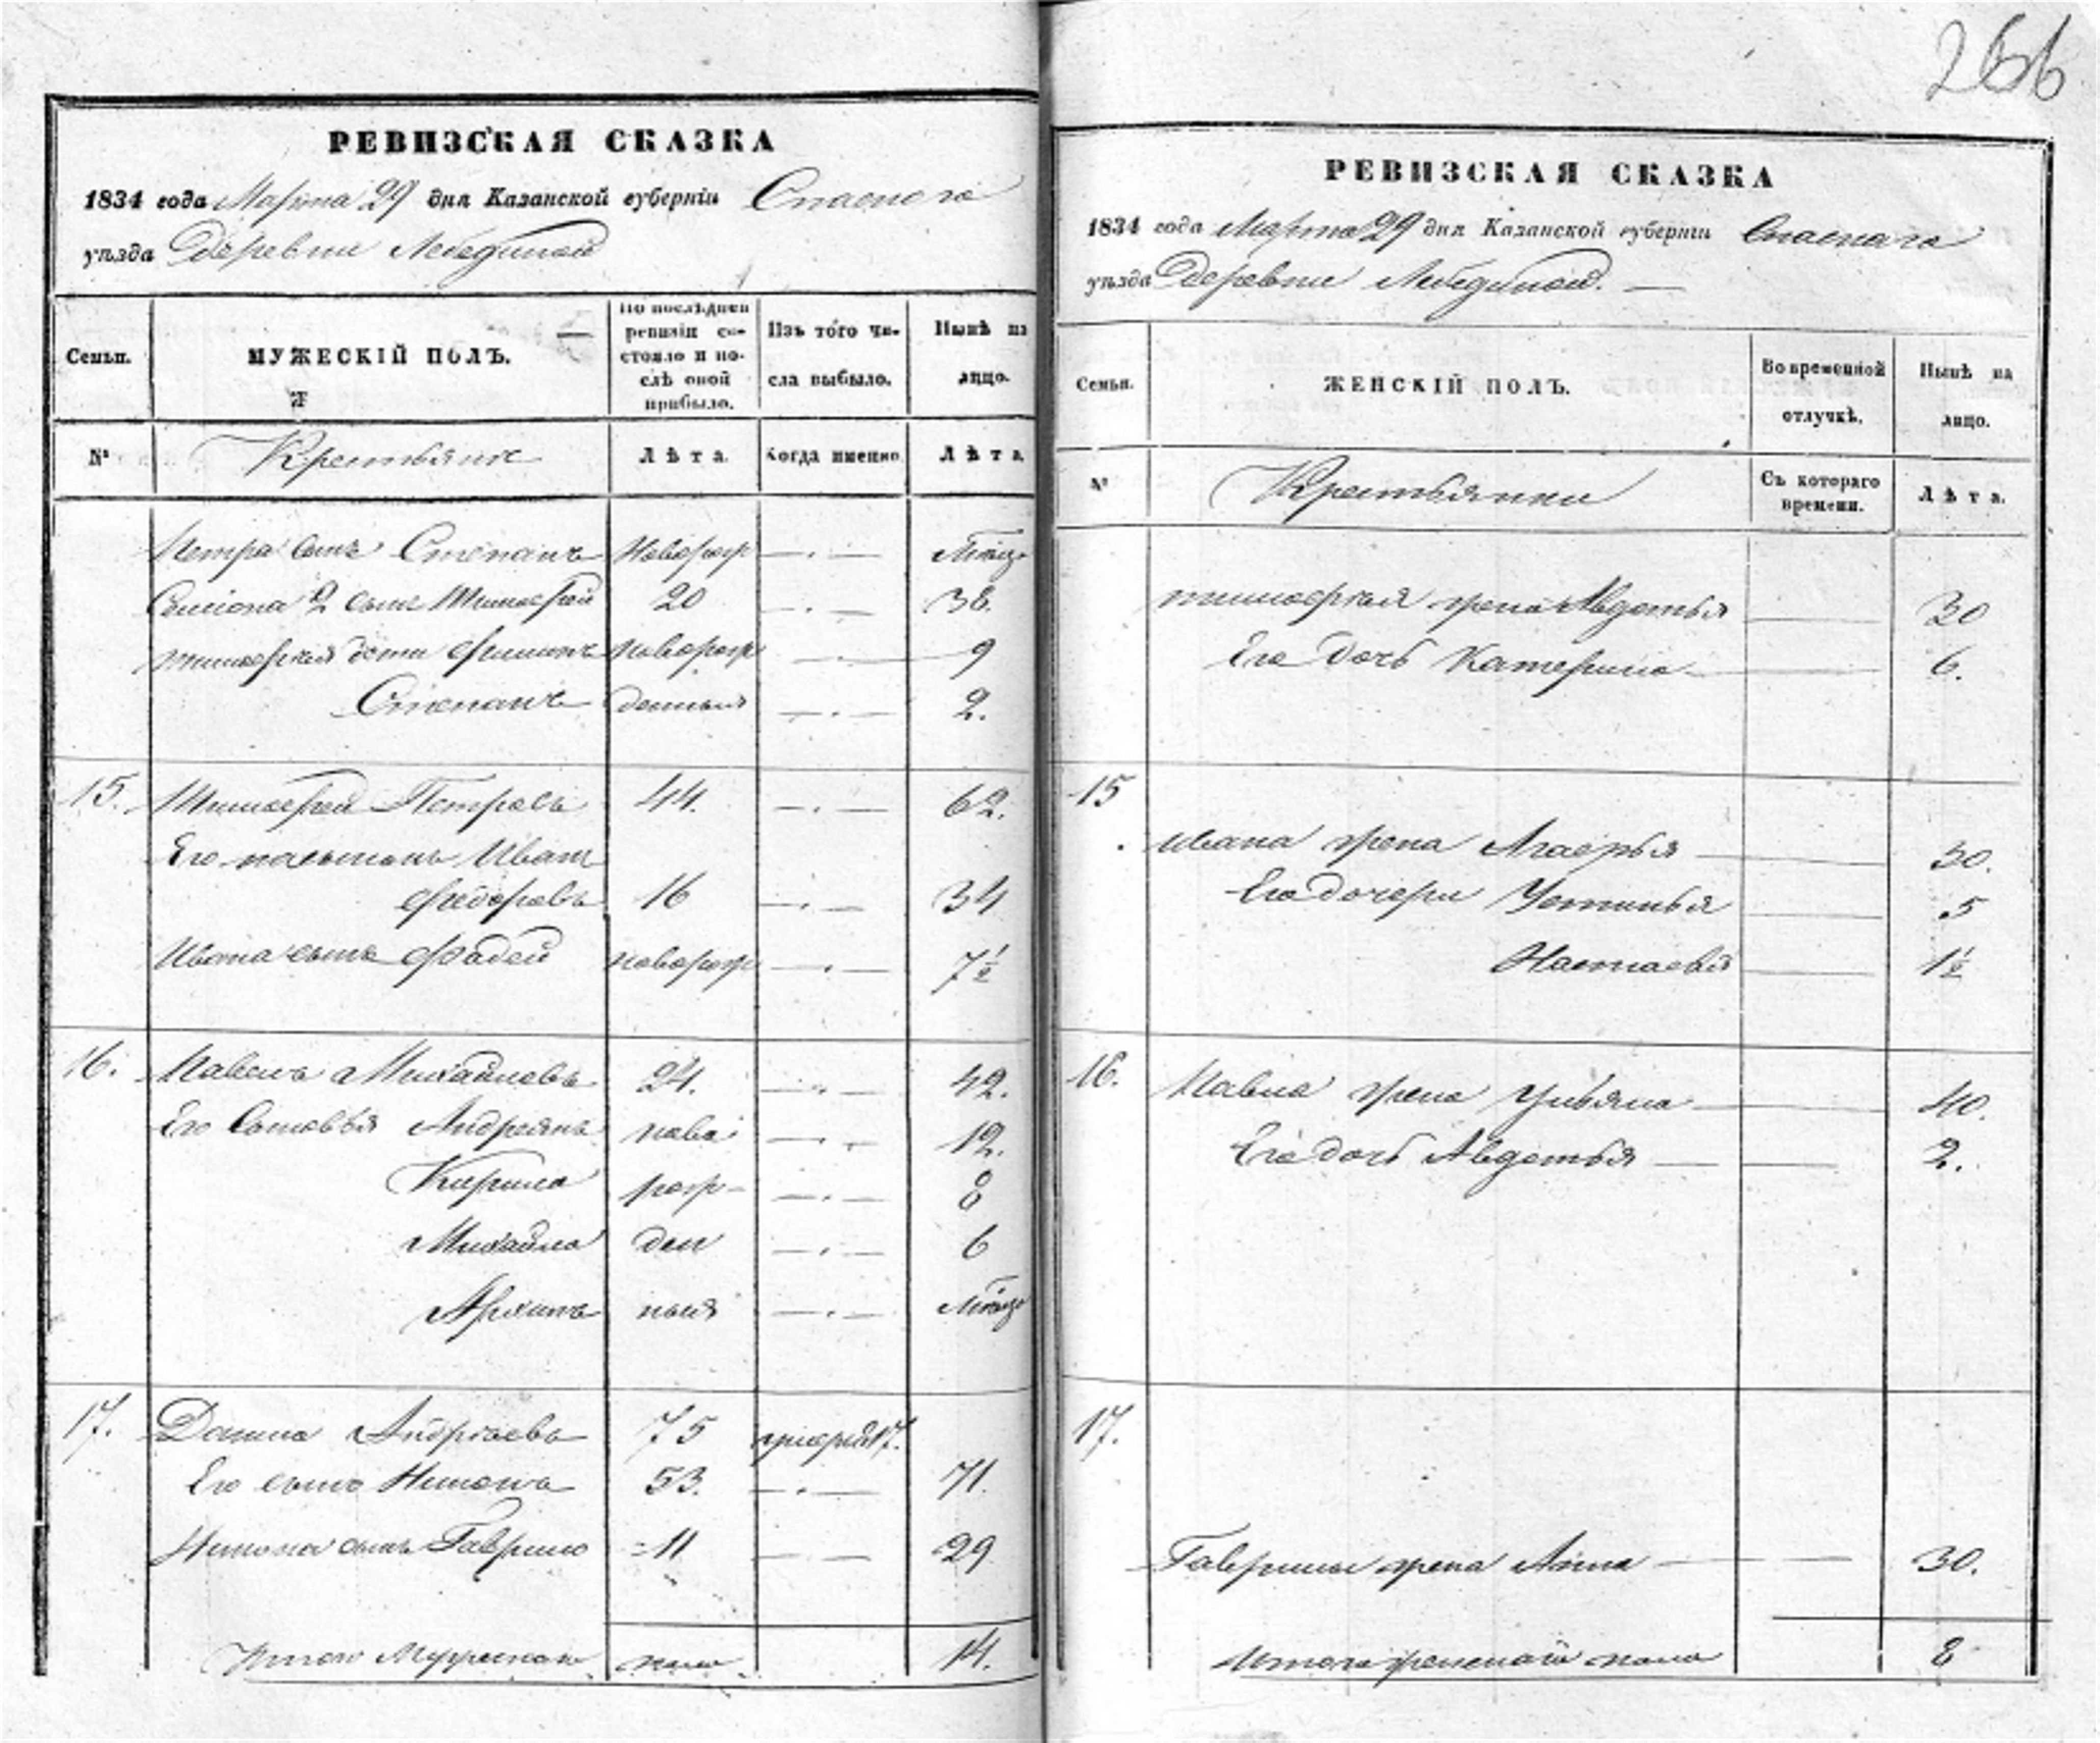 266
РЕВИЗСКАЯ СКАЗКА
1834 года Марта 29 дня Казанской губерніи Спаскаго
уѣзда Деревни Лебединой
Семьи.
МУЖЕСКІЙ ПОЛЪ.
По послѣдней ревизіи состояло и послѣ оной прибыло.
Изъ того числа выбыло.
Нынѣ на лицо.
№
Крестьяне
Лѣта.
Когда именно
Лѣта.
Петра сынъ Степанъ новорож —.—
Семіона 2 сынъ Тимофей 20 —.— 38.
Тимофея дети Филипъ новорож —.— 9
Степанъ денныя —.— 2.
15. Тимофей Петровъ 44. —.— 62.
Его пасынокъ Иванъ
Федоровъ 16 —.— 34
Ивана сынъ Фадей новорож —.— 7½
16. Павелъ Михайловъ 24. —.— 42.
Его Сыновья Андреянъ ново —.— 12.
Кирила рож- —.— 8
Михайла ден —.— 6
Архипъ ныя —.—
17. Данила Андреевъ 75
Его сынъ Никонъ 53. —.— 71.
Никона сынъ Гаврило 11 — — 29
Итого Мужеска пола 14.
РЕВИЗСКАЯ СКАЗКА
1834 года Марта 29 дня Казанской губерніи Спаскаго
уѣзда Деревни Лебединой. —
Семьи.
ЖЕНСКІЙ ПОЛЪ.
Во временной отлучкѣ.
Нынѣ на лицо.
№
Крестьянки
Съ котораго времени.
Лѣта.
Тимофея жена Авдотья 30
Его дочь Катерина 6.
15
Ивана жена Агафья 30.
Его дочери Устинья 5
Настасья 1½
16. Павла жена Ульяна 40.
Его дочь Авдотья 2.
17.
Гаврилы жена Анна 30.
Итого женскаго пола 8